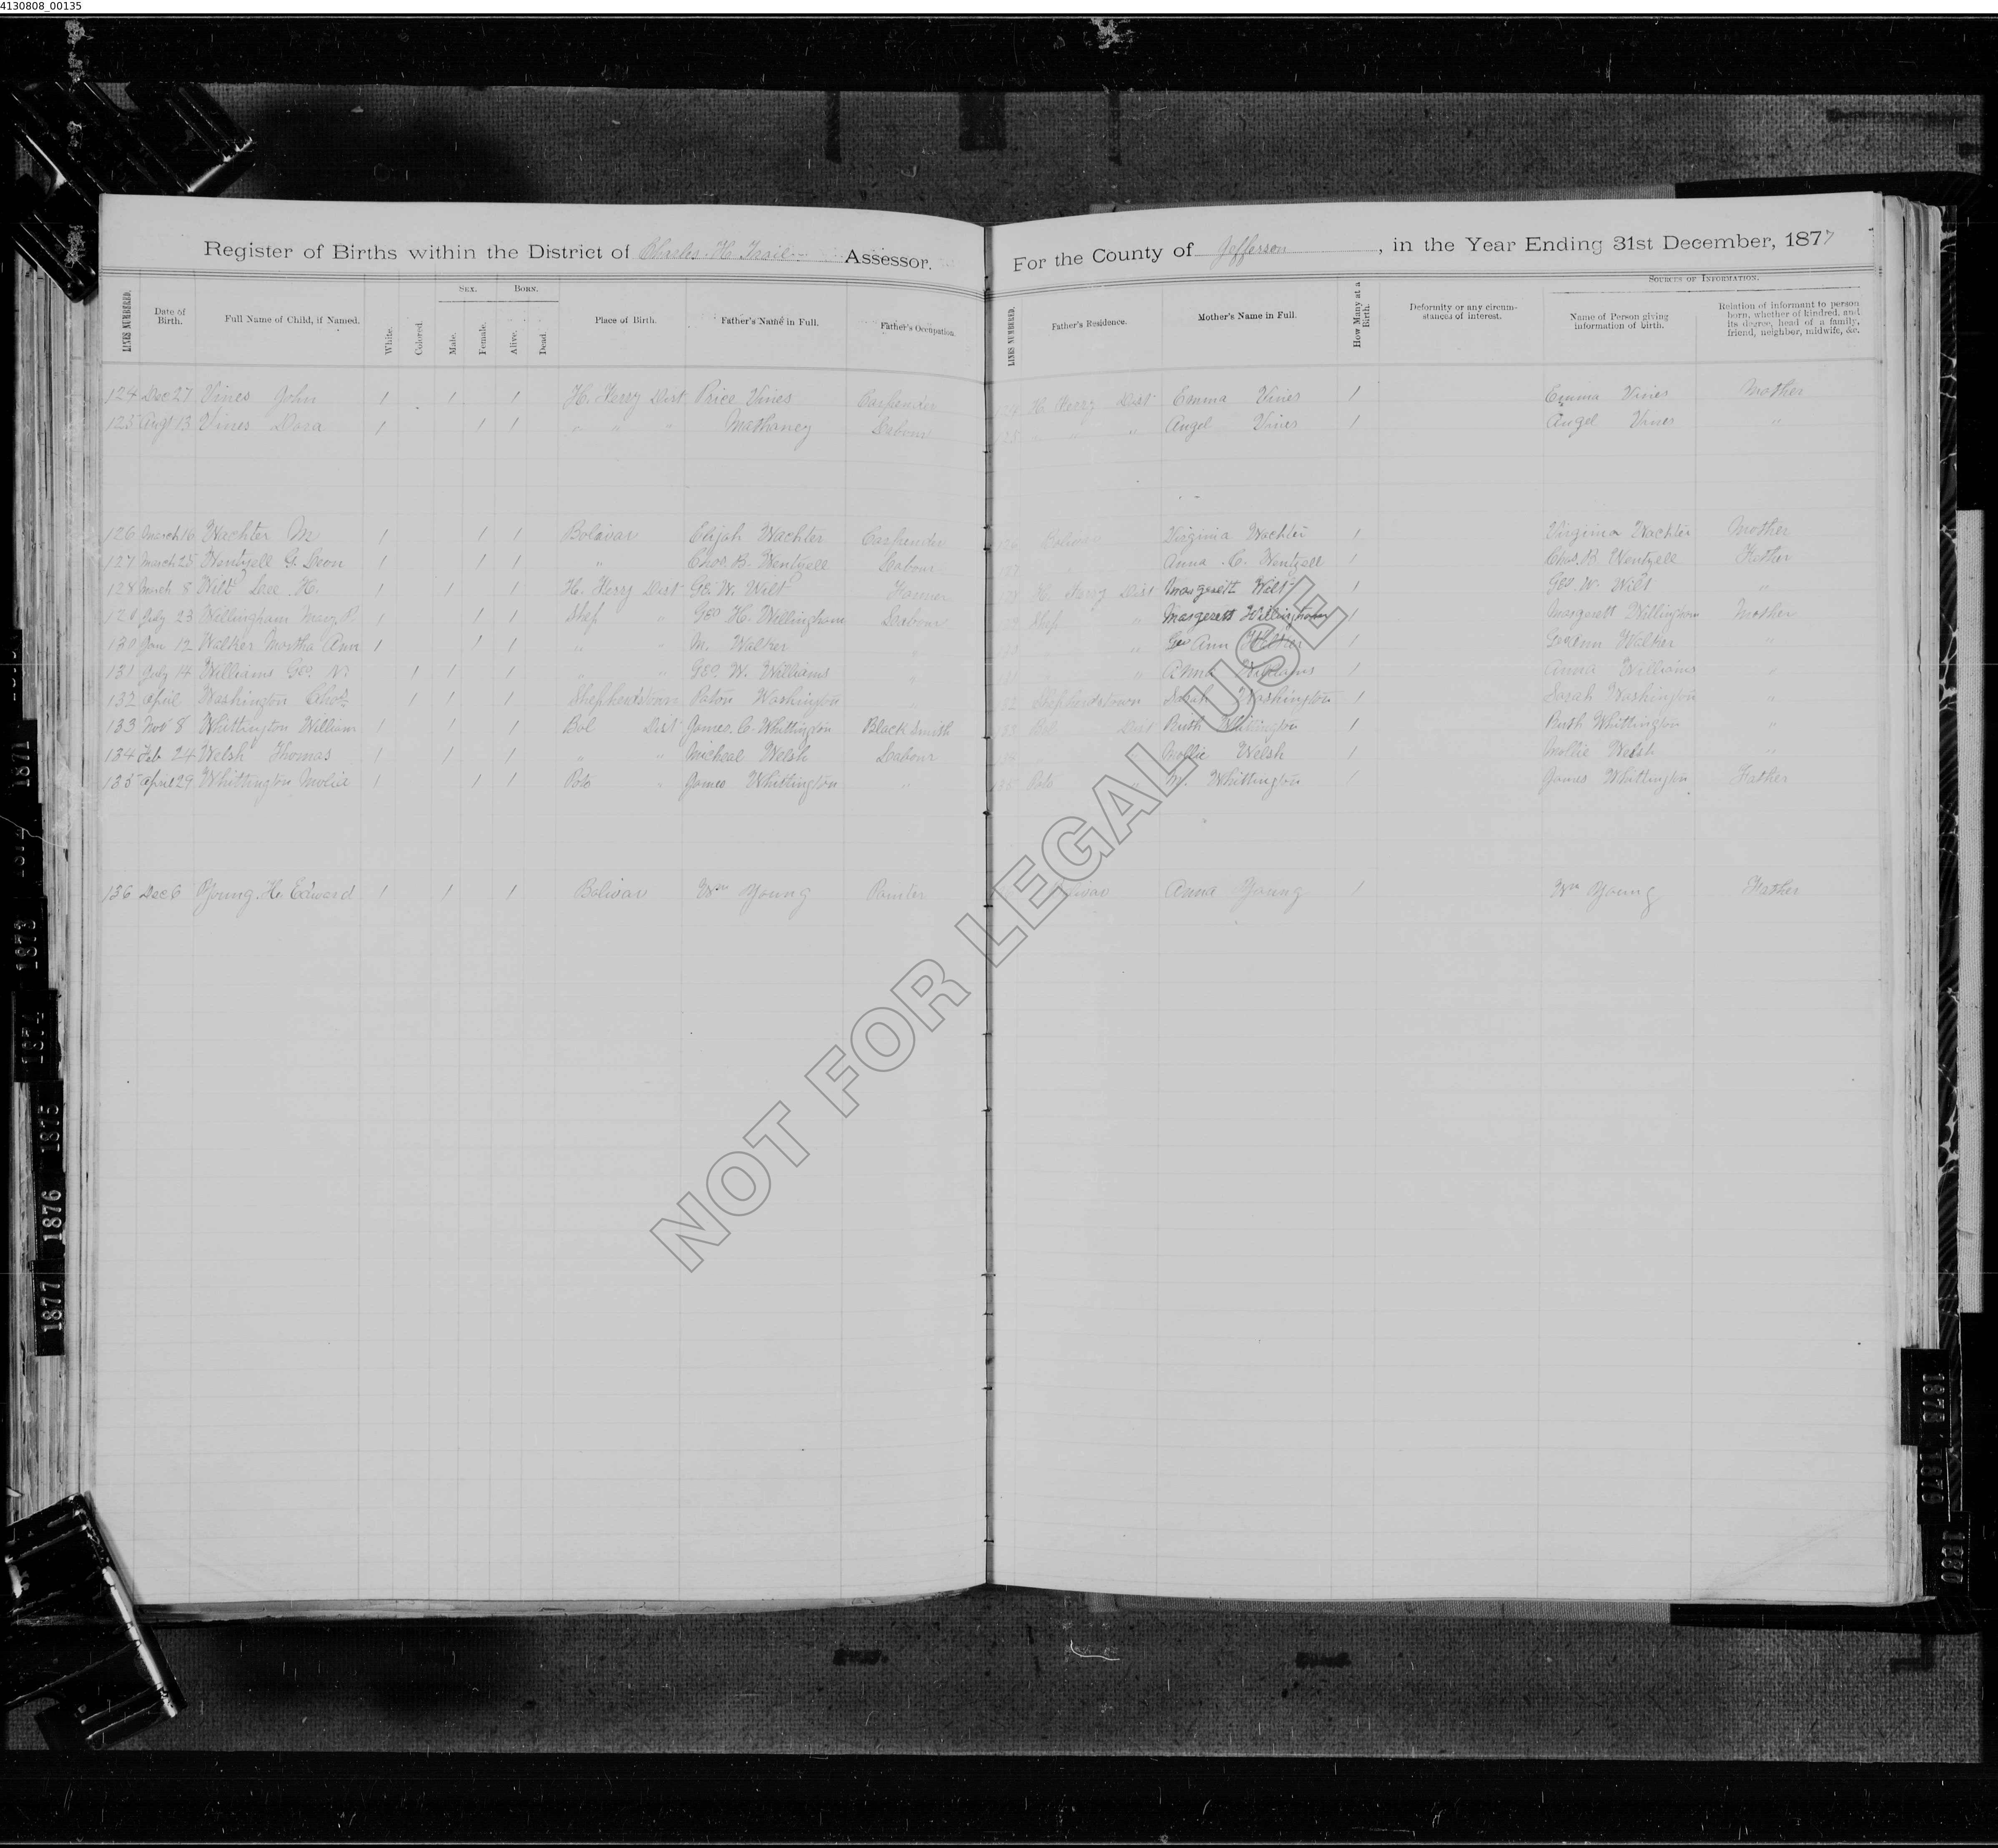 4130808_00135
Register of Births within the District of Charles H. Trail Assessor.
LINES NUMBERED.
Date of Birth.
Full Name of Child, if Named.
White.
Colored.
SEX.
Male.
Female.
BORN.
Alive.
Dead.
Place of Birth.
Father's Name in Full.
Father's Occupation.
124 Dec 27 Vines John 1 1 1 H. Ferry Dist Price Vines Carpender
125 Augt 13 Vines Dora 1 1 1 " " " Mathaney Labour
126 March 16 Wachter M 1 1 1 Bolivar Elijah Wachter Carpender
127 March 25 Wentzell G. Deon 1 1 1 " Chas. B. Wentzell Labour
128 March 8 Wilt Lee H. 1 1 1 H. Ferry Dist Ge. W. Wilt Farmer
129 July 23 Willingham Mary P. 1 1 1 Shep " Geo H. Willingham Labour
130 Jan 12 Walker Martha Ann 1 1 1 " " M. Walker "
131 July 14 Williams Geo. W. 1 1 1 " " Geo. W. Williams "
132 April Washington Chas. 1 1 1 Shepherdstown Paton Washington
133 Nov 8 Whittington William 1 1 1 Bol Dist James. C. Whittington Black Smith
134 Feb 24 Welsh Thomas 1 1 1 " " Micheal Welsh Labour
135 April 29 Whittington Molie 1 1 1 Poto " James Whittington "
136 Dec 6 Young. H. Edward 1 1 1 Bolivar Wm Young Painter
For the County of Jefferson, in the Year Ending 31st December, 1877
LINES NUMBERED.
Father's Residence.
Mother's Name in Full.
How Many at a Birth.
Deformity or any circumstances of interest.
SOURCES OF INFORMATION.
Name of Person giving information of birth.
Relation of informant to person born, whether of kindred, and its degree, head of a family, friend, neighbor, midwife, &c.
124 H. Ferry Dist Emma Vines 1 Emma Vines Mother
125 " " " Angel Vines 1 Angel Vines "
126 Bolivar Virginia Wachter 1 Virginia Wachter Mother
127 Anna C. Wentzell 1 Chas. B Wentzell Father
128 H. Ferry Dist Margerett Wilt 1 Geo. W. Wilt "
Shep " Margerett Willingham 1 Margerett Willingham Mother
" Geo Ann Walker 1 Geo Ann Walker "
" Anna Williams 1 Anna Williams "
132 Shepherdstown Sarah Washington 1 Sarah Washington "
133 Bol Dist Ruth Whittington 1 Ruth Whittington "
" Mollie Welsh 1 Mollie Welsh "
135 Poto " M. Whittington 1 James Whittington Father
Bolivar Anna Young 1 Wm Young Father
NOT FOR LEGAL USE
1871
1873
1874
1875
1876
1877
1878
1879
1880